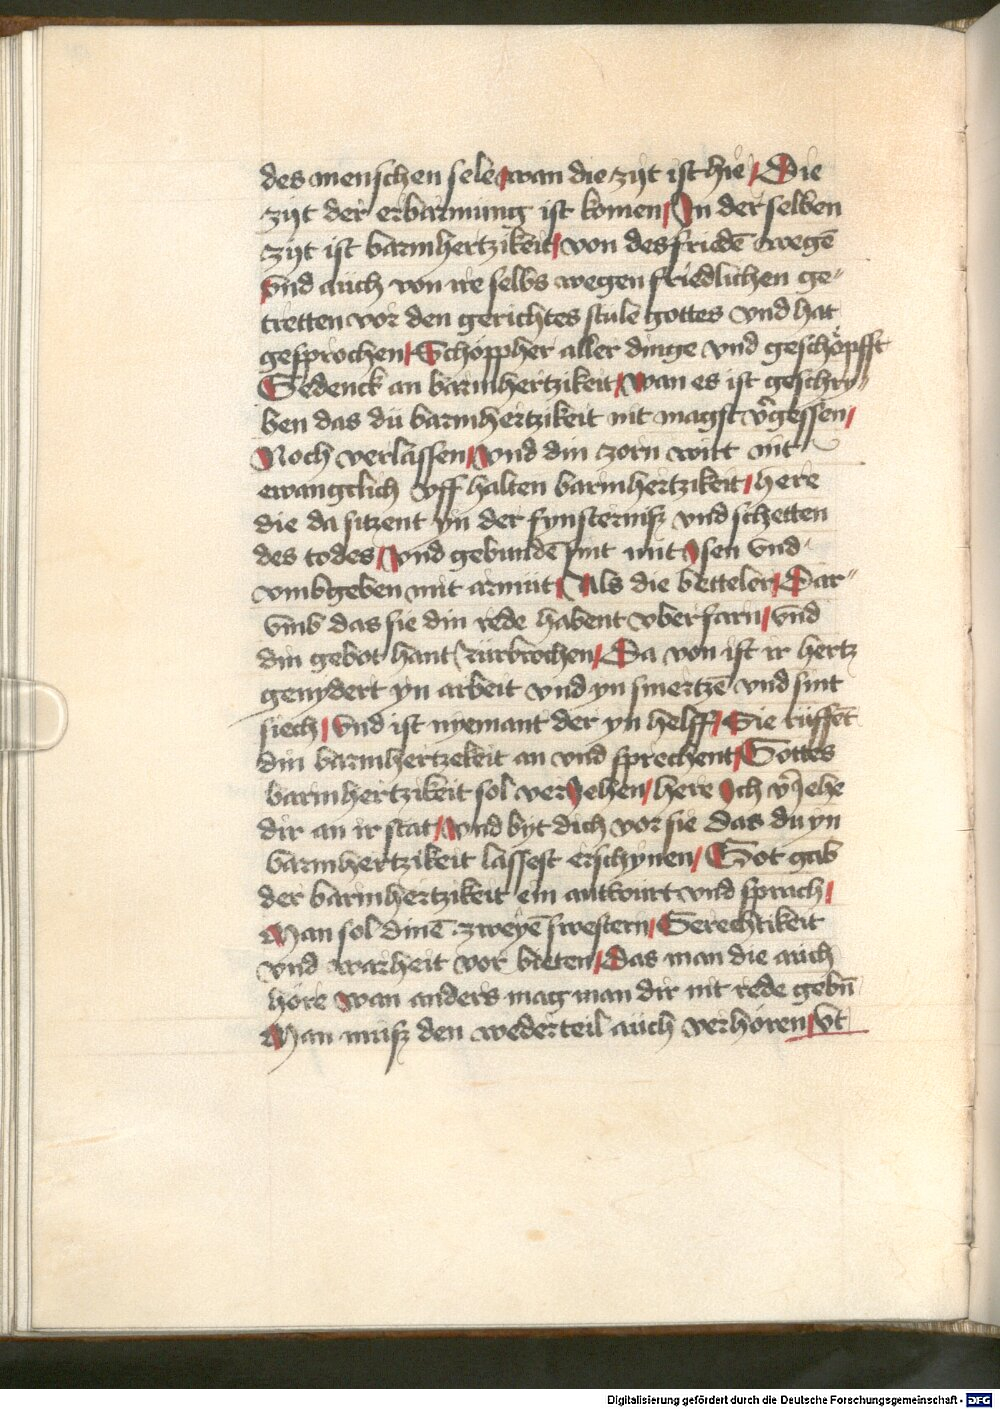 des menschen sele / wan die zijt ist hie / Die
zijt der erbarmung ist komen / Jn der selben
zijt ist barmhertzikeit / von des friedē wegē
vnd auch von ire selbs wegen friedlichen ge"
tretten vor den gerichtes stule gottes vnd hat
gesprochen / Schöppher aller dinge vnd geschöpfft
Gedenck an barmhertzikeit / Wan es ist geschry"
ben das dü barmhertzikeit nit magst v̄gessen /
Noch verlassen / Vnd din zorn wirt nit
ewanglich vff halten barmhertzikeit / here
die da sitzent yn der fynsterniß vnd schetten
des todes / Vnd gebundē sint mit Jsen vnd
vmbgeben mit armüt / Als die betteler / Dar"
vmb das sie din rede habent vberfarn / vnd
din gebot hant zürbrochen / Da von ist ir hertz
genydert yn arbeit vnd yn smertzē vnd sint
siech / vnd ist nyemant der yn helff / Sie rüffēt
din barmhertzekeit an vnd sprechent / Gottes
barmhertzikeit sol verJehen / here Jch v̄Jehe
dir an ir stat / Vnd byt dich vor sie das du yn
barmhertzikeit lassest erschynen / Got gab
der barmhertzikeit ein antwürt vnd sprach /
Man sol dinē zweyē swestern / Gerechtikeit
vnd warheit vor bieten / Das man die auch
höre Wan anders mag man dir nit rede gebn̄
Man müß den wederteil auch verhören / vt
Digitalisierung gefördert durch die Deutsche Forschungsgemeinschaft - DFG